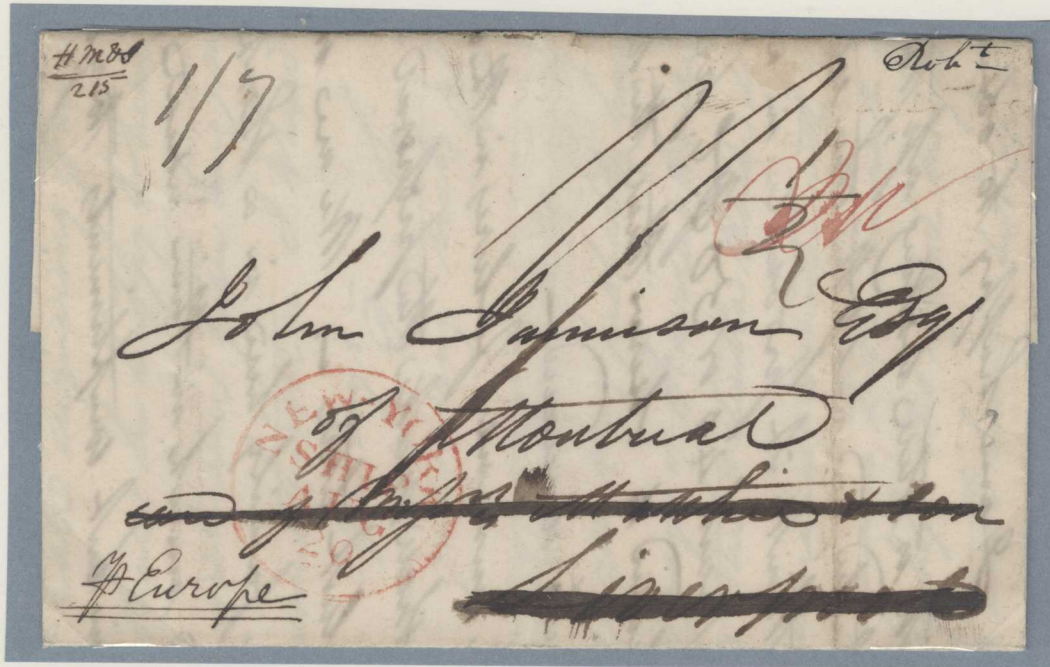 H M & S
215
1/7
Robt
1/2
John Jamieson Esqr
of Montreal
care of Messrs & Son
Liverpool
NEW YORK
SHIP
AUG
20
P Europe